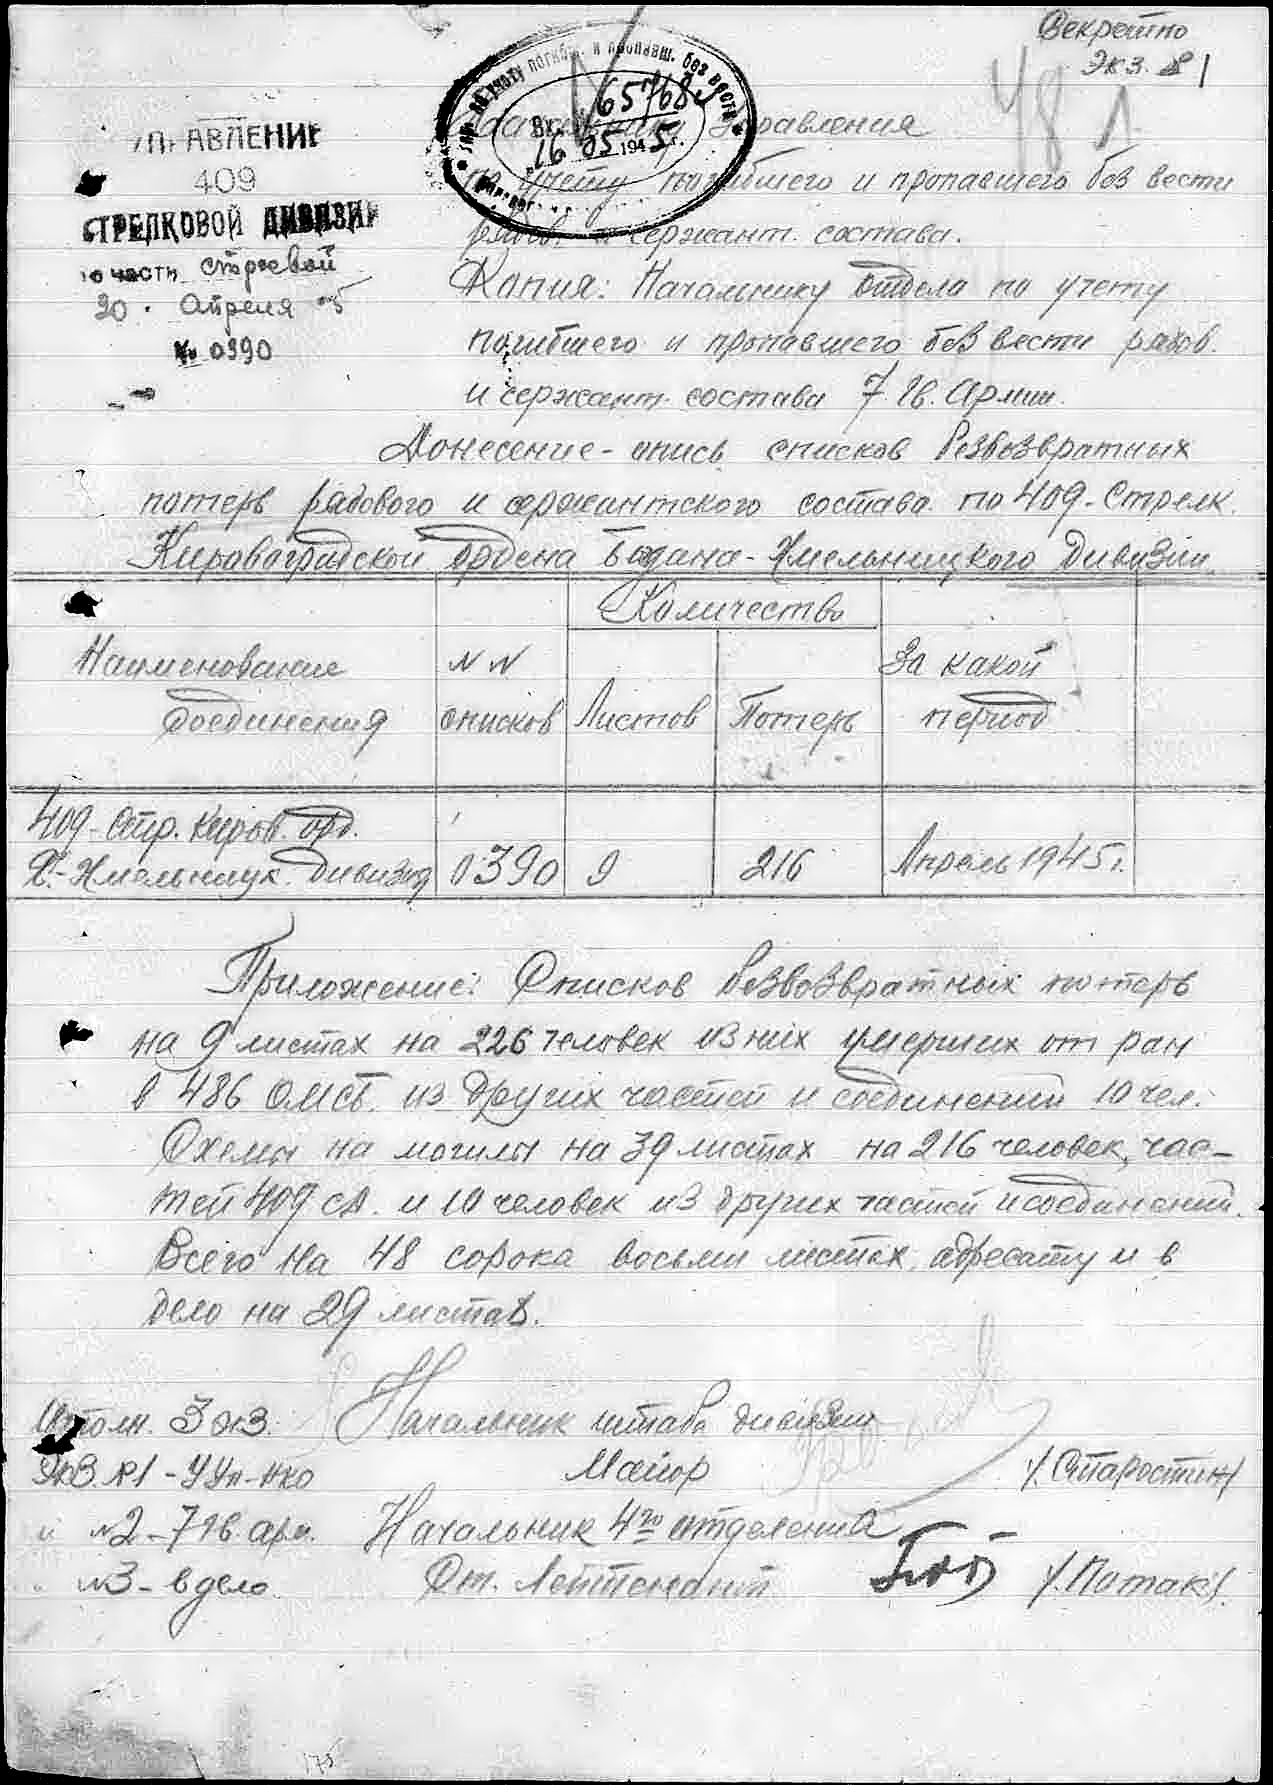 Секретно
Экз. №1
48 л
УПРАВЛЕНИЕ
409
СТРЕЛКОВОЙ ДИВИЗИИ
по части строевой
20. Апреля 5
№ 0390
упр. по учету погибш. и пропавш. без вести
Вх. 65768
16 05 1945 г.
Начальнику Управления
по учету погибшего и пропавшего без вести
рядов. и сержант. состава.
Копия: Начальнику отдела по учету
погибшего и пропавшего без вести рядов.
и сержант. состава 7 Гв. Армии.
Донесение - опись списков безвозвратных
потерь рядового и сержантского состава по 409 - Стрелк.
Кировоградской ордена Богдана-Хмельницкого Дивизии.
Наименование соединения
NN списков
Количество
Листов
Потерь
За какой период
409 - Стр. Киров. орд.
Б.-Хмельницк. Дивизия
0390
9
216
Апрель 1945 г.
Приложение: Списков безвозвратных потерь
на 9 листах на 226 человек из них умерших от ран
в 486 ОМСБ. из других частей и соединений 10 чел.
Схемы на могилы на 39 листах на 216 человек, час-
тей 409 сд. и 10 человек из других частей и соединений.
Всего на 48 сорока восьми листах, адресату и в
дело на 29 листах.
Исполн. 3 экз.
Экз. №1 - УУп-НКО
" №2 - 7 гв. арм.
" №3 - в дело.
Начальник штаба дивизии
Майор /Старостин/
Начальник 4го отделения
Ст. Лейтенант /Потак/.
175